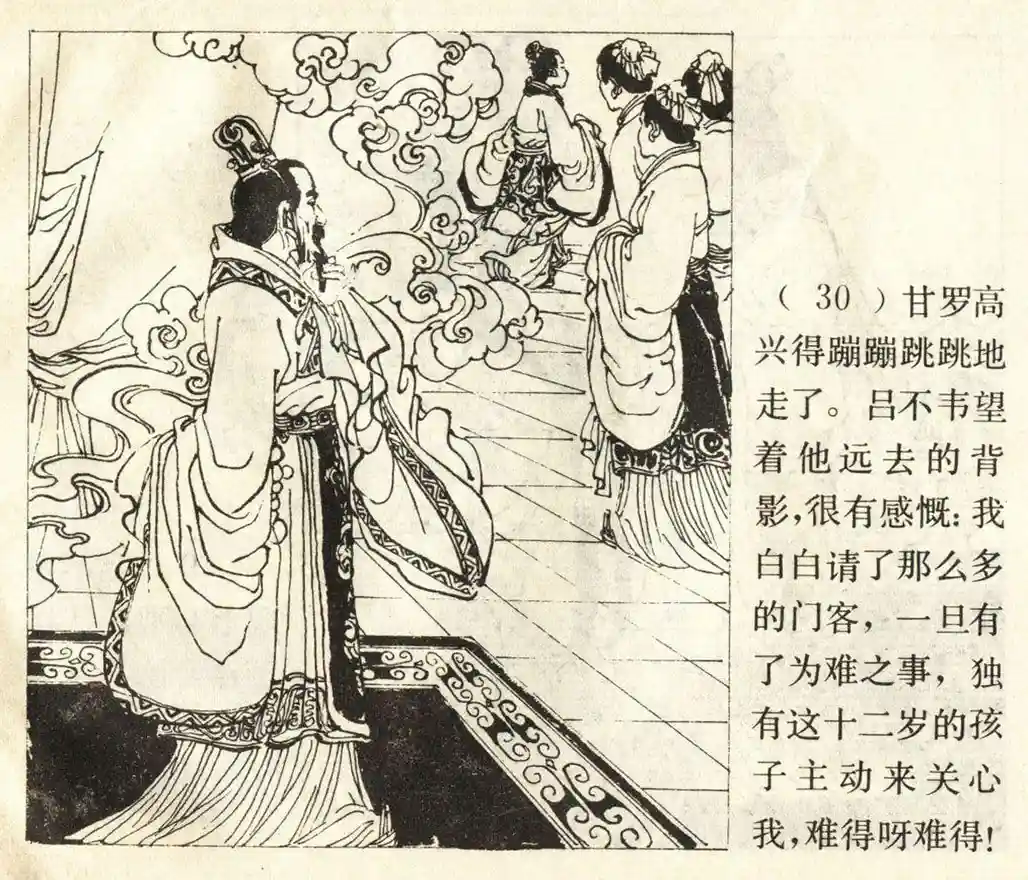 （30）甘罗高
兴得蹦蹦跳跳地
走了。吕不韦望
着他远去的背
影,很有感慨:我
白白请了那么多
的门客，一旦有
了为难之事，独
有这十二岁的孩
子主动来关心
我,难得呀难得!